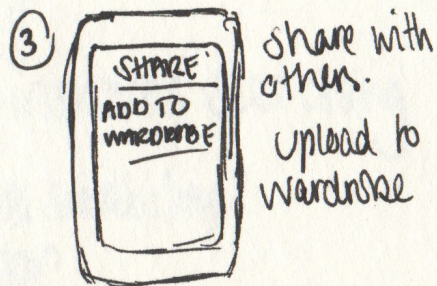 3
SHARE
ADD TO
WARDROBE
share with
others.
upload to
wardrobe